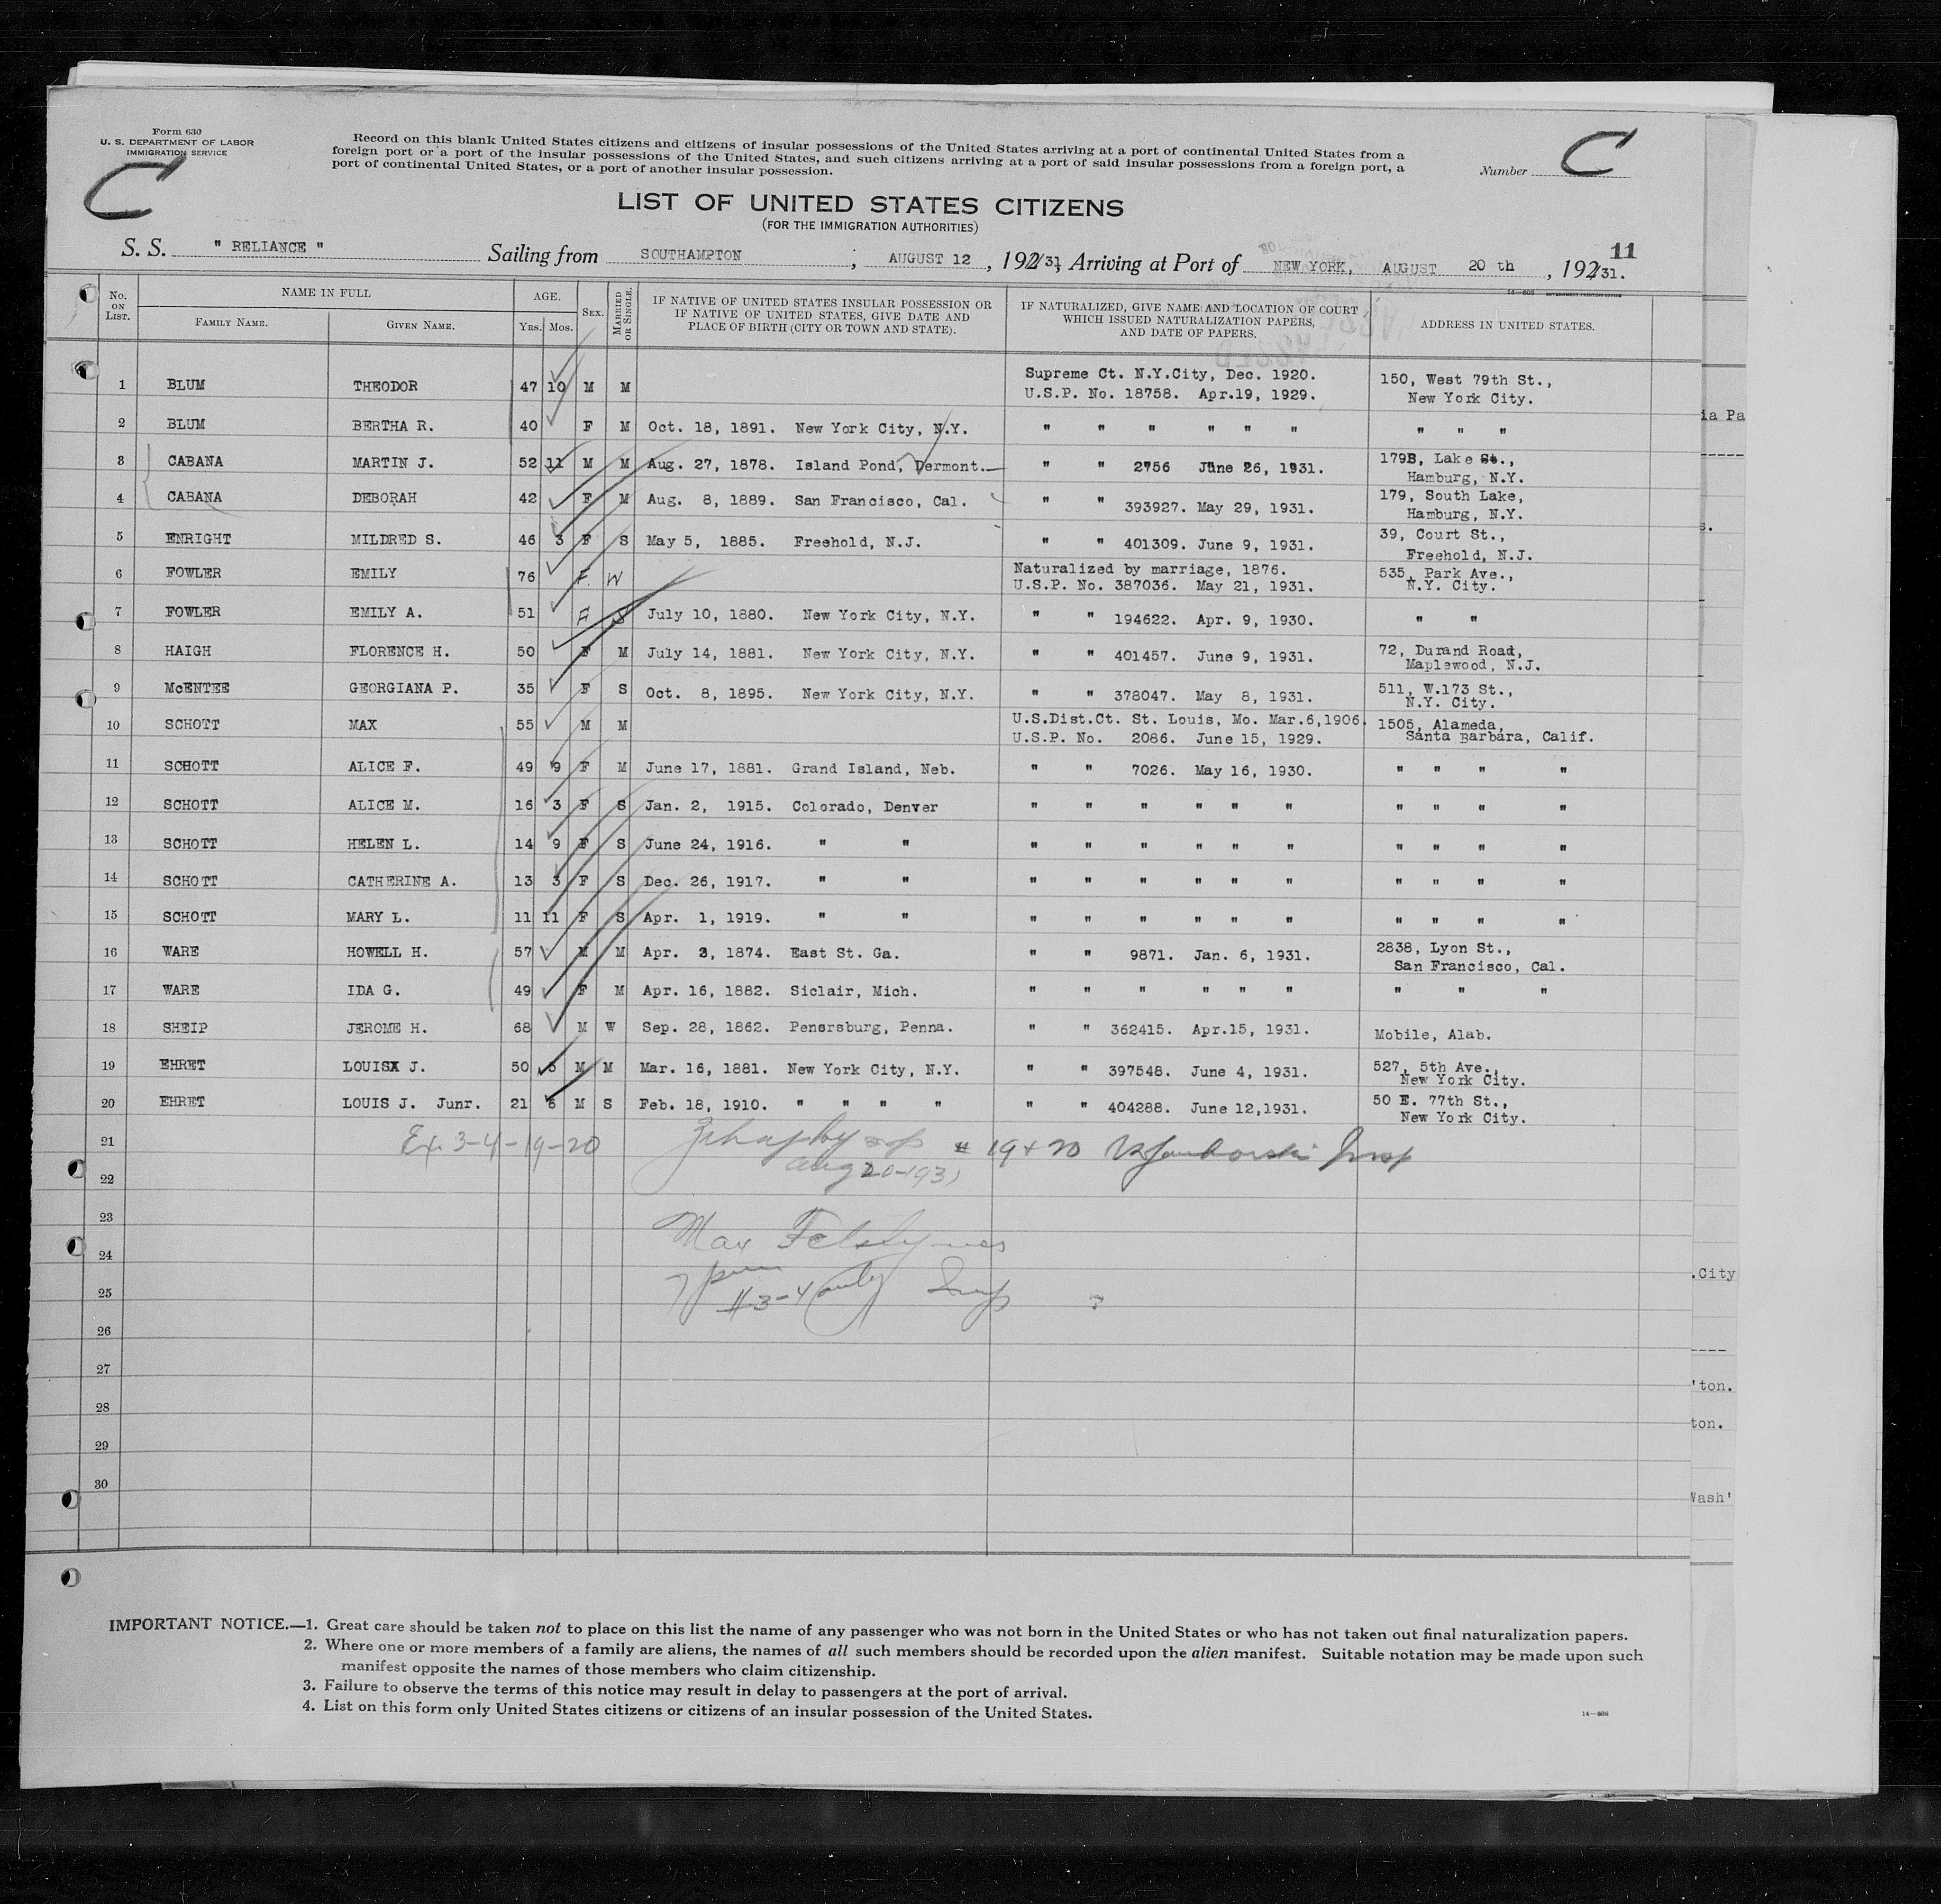 Form 630
U. S. DEPARTMENT OF LABOR
IMMIGRATION SERVICE
C
Record on this blank United States citizens and citizens of insular possessions of the United States arriving at a port of continental United States from a
foreign port or a port of the insular possessions of the United States, and such citizens arriving at a port of said insular possessions from a foreign port, a
port of continental United States, or a port of another insular possession.
Number C
LIST OF UNITED STATES CITIZENS
(FOR THE IMMIGRATION AUTHORITIES)
11
S. S. " RELIANCE " Sailing from SOUTHAMPTON ; AUGUST 12 , 192/31, Arriving at Port of NEW YORK, AUGUST 20 th , 192/31.
No. ON LIST. NAME IN FULL FAMILY NAME. GIVEN NAME. AGE. Yrs. Mos. SEX. MARRIED OR SINGLE. IF NATIVE OF UNITED STATES INSULAR POSSESSION OR IF NATIVE OF UNITED STATES, GIVE DATE AND PLACE OF BIRTH (CITY OR TOWN AND STATE). IF NATURALIZED, GIVE NAME AND LOCATION OF COURT WHICH ISSUED NATURALIZATION PAPERS, AND DATE OF PAPERS. ADDRESS IN UNITED STATES.
1 BLUM THEODOR 47 10 M M Supreme Ct. N.Y.City, Dec. 1920. 150, West 79th St.,
U.S.P. No. 18758. Apr.19, 1929. New York City.
2 BLUM BERTHA R. 40 F M Oct. 18, 1891. New York City, N.Y. " " " " " " " " "
3 CABANA MARTIN J. 52 11 M M Aug. 27, 1878. Island Pond, Dermont. " " 2756 June 26, 1931. 179B, Lake St.,
Hamburg, N.Y.
4 CABANA DEBORAH 42 F M Aug. 8, 1889. San Francisco, Cal. " " 393927. May 29, 1931. 179, South Lake,
Hamburg, N.Y.
5 ENRIGHT MILDRED S. 46 3 F S May 5, 1885. Freehold, N.J. " " 401309. June 9, 1931. 39, Court St.,
Freehold, N.J.
6 FOWLER EMILY 76 F W Naturalized by marriage, 1876. 535, Park Ave.,
U.S.P. No. 387036. May 21, 1931. N.Y. City.
7 FOWLER EMILY A. 51 F S July 10, 1880. New York City, N.Y. " " 194622. Apr. 9, 1930. " "
8 HAIGH FLORENCE H. 50 F M July 14, 1881. New York City, N.Y. " " 401457. June 9, 1931. 72, Durand Road,
Maplewood, N.J.
9 McENTEE GEORGIANA P. 35 F S Oct. 8, 1895. New York City, N.Y. " " 378047. May 8, 1931. 511, W.173 St.,
N.Y. City.
10 SCHOTT MAX 55 M M U.S.Dist.Ct. St. Louis, Mo. Mar.6,1906. 1505, Alameda,
U.S.P. No. 2086. June 15, 1929. Santa Barbara, Calif.
11 SCHOTT ALICE F. 49 9 F M June 17, 1881. Grand Island, Neb. " " 7026. May 16, 1930. " " " "
12 SCHOTT ALICE M. 16 3 F S Jan. 2, 1915. Colorado, Denver " " " " " " " " " "
13 SCHOTT HELEN L. 14 9 F S June 24, 1916. " " " " " " " " " " " "
14 SCHOTT CATHERINE A. 13 3 F S Dec. 26, 1917. " " " " " " " " " " " "
15 SCHOTT MARY L. 11 11 F S Apr. 1, 1919. " " " " " " " " " " " "
16 WARE HOWELL H. 57 M M Apr. 3, 1874. East St. Ga. " " 9871. Jan. 6, 1931. 2838, Lyon St.,
San Francisco, Cal.
17 WARE IDA G. 49 F M Apr. 16, 1882. Siclair, Mich. " " " " " " " " "
18 SHEIP JEROME H. 68 M W Sep. 28, 1862. Penersburg, Penna. " " 362415. Apr.15, 1931. Mobile, Alab.
19 EHRET LOUIS J. 50 5 M M Mar. 16, 1881. New York City, N.Y. " " 397548. June 4, 1931. 527, 5th Ave.,
New York City.
20 EHRET LOUIS J. Junr. 21 6 M S Feb. 18, 1910. " " " " " " 404288. June 12,1931. 50 E. 77th St.,
New York City.
21 Ex. 3-4-19-20 # 19 + 20 Insp
22 Aug 20-1931
23
24 Max
25 #3-4 only Insp
26
27
28
29
30
ia Pa
s.
.City
'ton.
ton.
Wash'
IMPORTANT NOTICE.—1. Great care should be taken not to place on this list the name of any passenger who was not born in the United States or who has not taken out final naturalization papers.
2. Where one or more members of a family are aliens, the names of all such members should be recorded upon the alien manifest. Suitable notation may be made upon such
manifest opposite the names of those members who claim citizenship.
3. Failure to observe the terms of this notice may result in delay to passengers at the port of arrival.
4. List on this form only United States citizens or citizens of an insular possession of the United States.
14—608